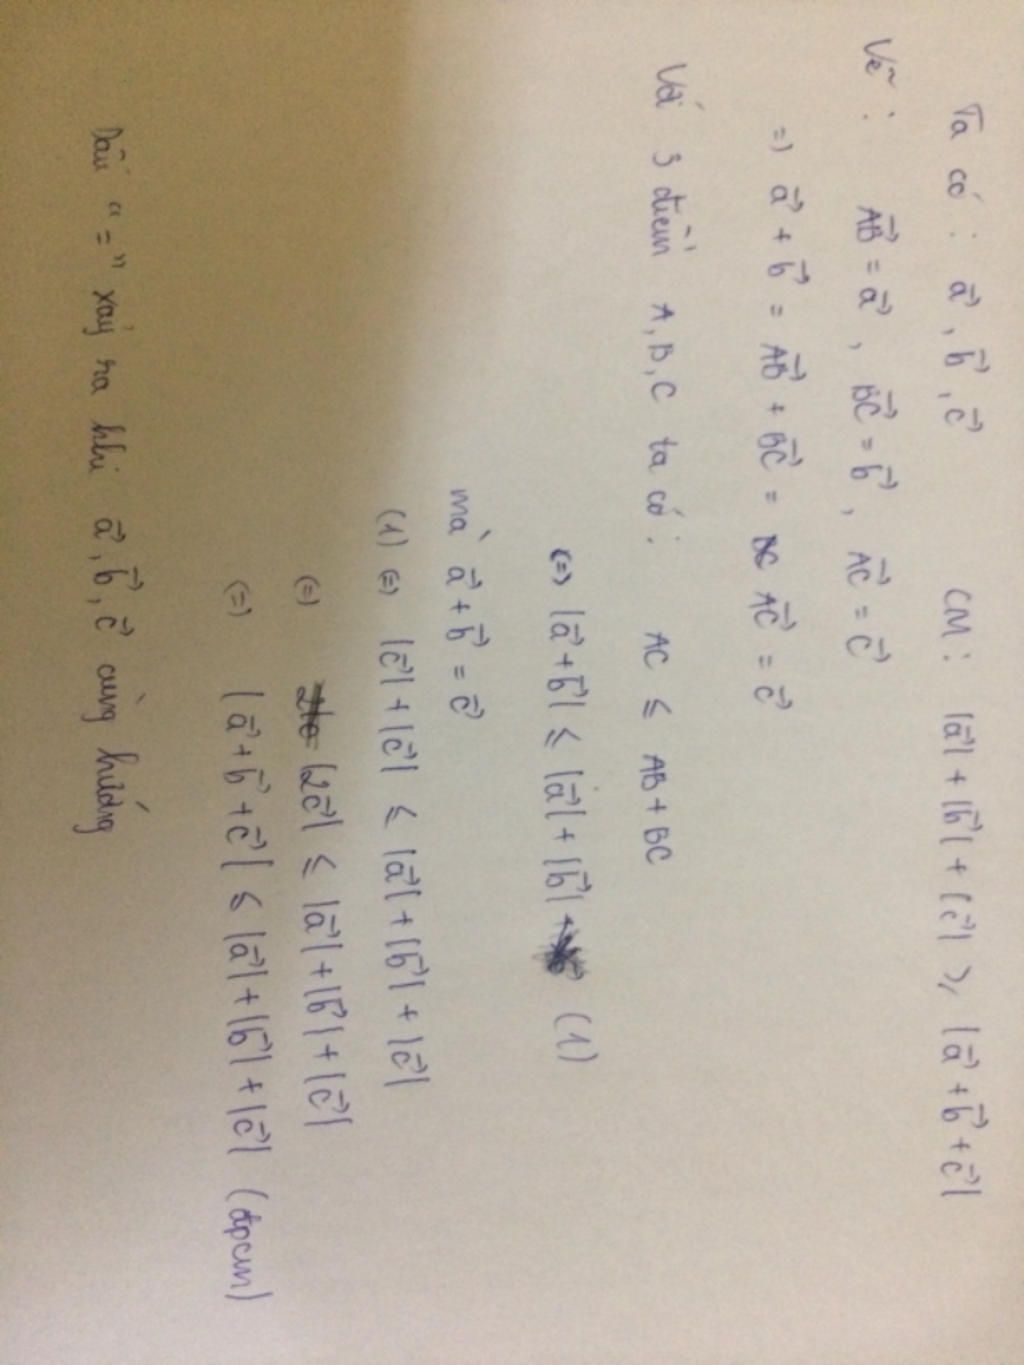 Ta có : a⃗, b⃗, c⃗ CM : |a⃗| + |b⃗| + |c⃗| ≥ |a⃗ + b⃗ + c⃗|
Vẽ : AB⃗ = a⃗, BC⃗ = b⃗, AC⃗ = c⃗
=> a⃗ + b⃗ = AB⃗ + BC⃗ = AC⃗ = c⃗
Với 3 điểm A, B, C ta có : AC ≤ AB + BC
(=) |a⃗ + b⃗| ≤ |a⃗| + |b⃗| (1)
mà a⃗ + b⃗ = c⃗
(1) (=) |c⃗| + |c⃗| ≤ |a⃗| + |b⃗| + |c⃗|
(=) |2c⃗| ≤ |a⃗| + |b⃗| + |c⃗|
(=) |a⃗ + b⃗ + c⃗| ≤ |a⃗| + |b⃗| + |c⃗| (đpcm)
Dấu "=" xảy ra khi a⃗, b⃗, c⃗ cùng hướng